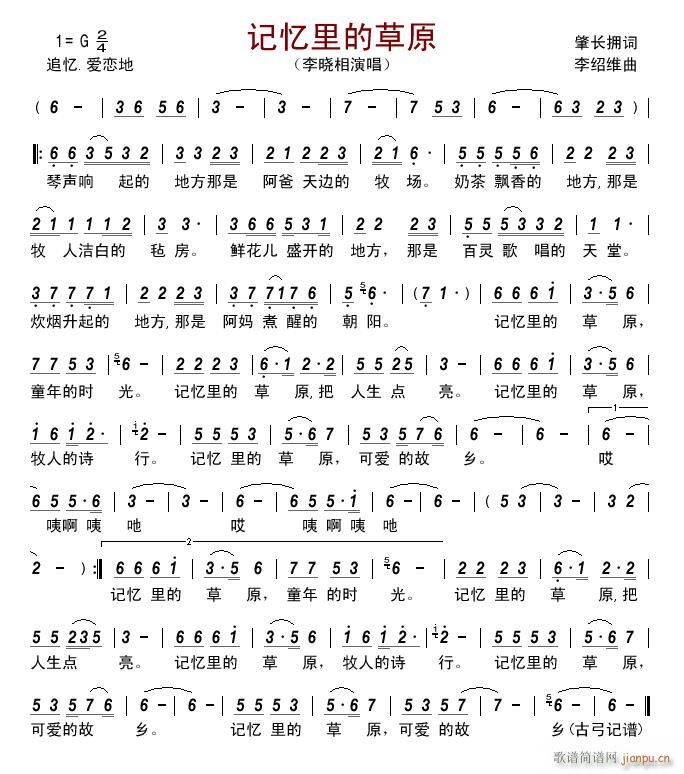 记忆里的草原
1= G 2/4
肇长拥词
追忆.爱恋地
（李晓相演唱）
李绍维曲
( 6 - | 3 6 5 6 | 3 - | 3 - | 7 - | 7 5 3 | 6 - | 6 - | 6 3 2 3 ) |
‖: 6 6 3 5 3 2 | 3 3 2 3 | 2 1 2 2 3 | 2 1 6 · | 5 5 5 5 6 | 2 2 2 3 |
琴声响 起的 地方那是 阿爸 天边的 牧 场。 奶茶 飘香的 地方,那是
2 1 1 1 1 2 | 3 3 · | 3 6 6 5 3 1 | 2 2 2 3 | 5 5 5 3 3 2 | 1 1 · |
牧 人洁白的 毡 房。 鲜花儿 盛开的 地方，那 是 百灵 歌 唱的 天 堂。
3 7 7 7 1 | 2 2 2 3 | 3 7 7 1 7 6 | 5 6 · | ( 7 1 · ) | 6 6 6 1 | 3 · 5 6 |
炊烟升起的 地方,那是 阿妈 煮 醒的 朝 阳。 记忆里的 草 原，
7 7 5 3 | 6 - | 2 2 2 3 | 6 · 1 2 · 2 | 5 5 2 5 | 3 - | 6 6 6 1 | 3 · 5 6 |
童年的时 光。 记忆里的 草 原,把 人生 点 亮。 记忆里的 草 原，
1 6 1 2 · | 2 - | 5 5 5 3 | 5 · 6 7 | 5 3 5 7 6 | 6 - | 6 - | 6 - |
牧人的诗 行。 记忆 里的 草 原，可爱 的故 乡。 哎
6 5 5 · 6 | 3 - | 3 - | 6 5 5 · 1 | 6 - | 6 - | ( 5 3 | 5 3 2 | 2 - |
咦啊 咦 吔 哎 咦 啊 咦 吔
2 - ) :‖ 6 6 6 1 | 3 · 5 6 | 7 7 5 3 | 6 - | 2 2 2 3 | 6 · 1 | 2 · 2 |
记忆 里的 草 原，童年 的时 光。 记忆 里的 草 原,把
5 5 2 3 5 | 3 - | 6 6 6 1 | 3 · 5 6 | 1 6 1 2 · | 2 - | 5 5 5 3 | 5 · 6 7 |
人生点 亮。 记忆里的 草 原,牧人的诗 行。 记忆里的 草 原，
5 3 5 7 6 | 6 - | 5 5 5 3 | 5 · 6 7 | 5 3 5 7 | 6 - | 6 - ‖
可爱的故 乡。 记忆 里的 草 原,可爱 的故 乡(古弓记谱)
歌谱简谱网
jianpu.cn